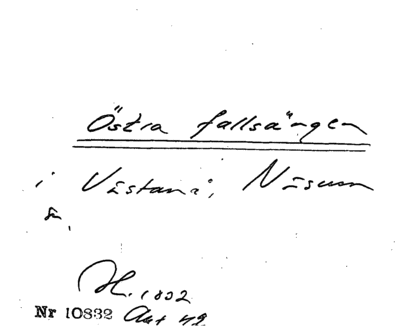 Östra fallsängen
i Västanå, Näsum
sn.
H. 1832
Nr 10832 Akt 42